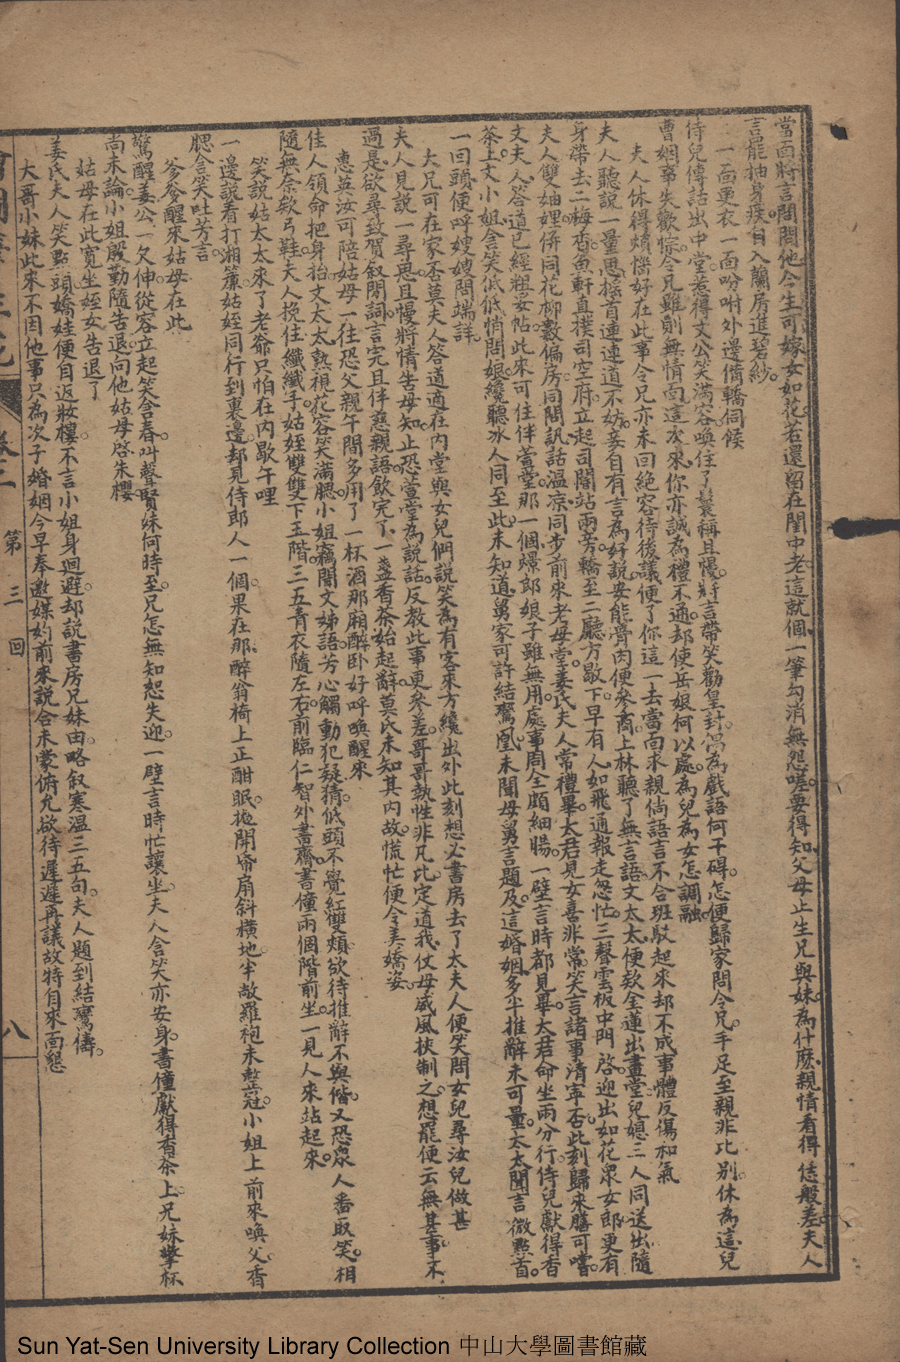 當面將言問問他今生可嫁女如花若還留在閨中老這就個一筆勾消無怨嗟要得知父母止生兄與妹為什麽親情看得恁般差夫人
言罷抽身疾自入蘭房進碧紗
一面更衣一面吩咐外邊備轎伺候
侍兒傳話出中堂惹得文公笑滿容喚住了鬟稱且慢將言帶笑勸皇封偶為戲語何干碍怎便歸家問令兄手足至親非比別休為這兒
曹姻事失歡悰令兄雖則無情面這次來你亦誠為禮不通却使岳娘何以處為兒為女怎調融
夫人休得煩惱好在此事令兄亦未回絕容待後議便了你這一去當面求親倘語言不合班駁起來却不成事體反傷和氣
夫人聽說一量思搖首連連道不妨妾自有言為好說安能骨肉便參商上林聽了無言語文太太便欵金蓮出畫堂兒媳三人同送出隨
身帶去二梅香魚軒直撲司空府立起司閽站兩旁轎至二廳方歇下早有人如飛通報走怱忙三聲雲板中門啓迎出如花眾女郎更有
夫人雙妯娌併同花柳數偏房同問訊話溫凉同步前來老母堂姜氏夫人常禮畢太君見女喜非常笑言諸事清寧否此刻歸來膳可嘗
文夫人答道已經粗妥帖此來可住伴萱堂那一個嫖郎娘子雖無用處事周全頗細腸一壁言時都見畢太君命坐兩分行侍兒獻得香
茶上文小姐含笑低低悄問娘纔聽氷人同至此未知道舅家可許結鸞凰未聞母舅言題及這婚姻多半推辭未可量太太聞言微點首
一回頭便呼嫂嫂問端詳
大兄可在家否莫夫人答道適在內堂與女兒們說笑為有客來方纔出外此刻想必書房去了太夫人便笑問女兒尋汝兒做甚
夫人見說一尋思且慢將情告母知止恐萱堂為說話反教此事更參差哥哥執性非凡比定道我仗母威風挾制之想罷便云無甚事不
過是欲尋致賀叙閒詞言完且伴慈親語飲完了一盞香茶始起辭莫氏未知其內故慌忙便令美嬌姿
惠英汝可陪姑母一往恐父親午間多用了一杯酒那廂醉卧好呼喚醒來
佳人領命把身抬文太太熟視花容笑滿腮小姐竊聞文娣語芳心觸動犯疑猜低頭不覺紅雙頰欲待推辭不與偕又恐眾人番取笑相
隨無奈欵弓鞋夫人挽住纖纖手姑姪雙雙下玉階三五青衣隨左右前臨仁智外書齋書僮兩個階前坐一見人來站起來
笑說姑太太來了老爺只怕在內歇午哩
一邊說着打湘簾姑姪同行到裏邊却見侍郎人一個果在那醉翁椅上正酣眠拋開帋扇斜橫地半敞羅袍未整冠小姐上前來喚父香
腮含笑吐芳言
爹爹醒來姑母在此
驚醒姜公一欠伸從容立起笑含春叫聲賢妹何時至兄怎無知恕失迎一壁言時忙讓坐夫人含笑亦安身書僮獻得香茶上兄妹擎杯
尚未論小姐殷勤隨告退向他姑母啓朱櫻
姑母在此寬坐姪女告退了
姜氏夫人笑點頭嬌娃便自返妝樓不言小姐身迴避却説書房兄妹由略叙寒温三五句夫人題到結鸞儔
大哥小妹此來不因他事只為次子婚姻今早奉邀媒妁前來説合未蒙俯允欲待遲遲再議故特自來面懇
卷三
第三回
八
Sun Yat-Sen University Library Collection 中山大學圖書館藏